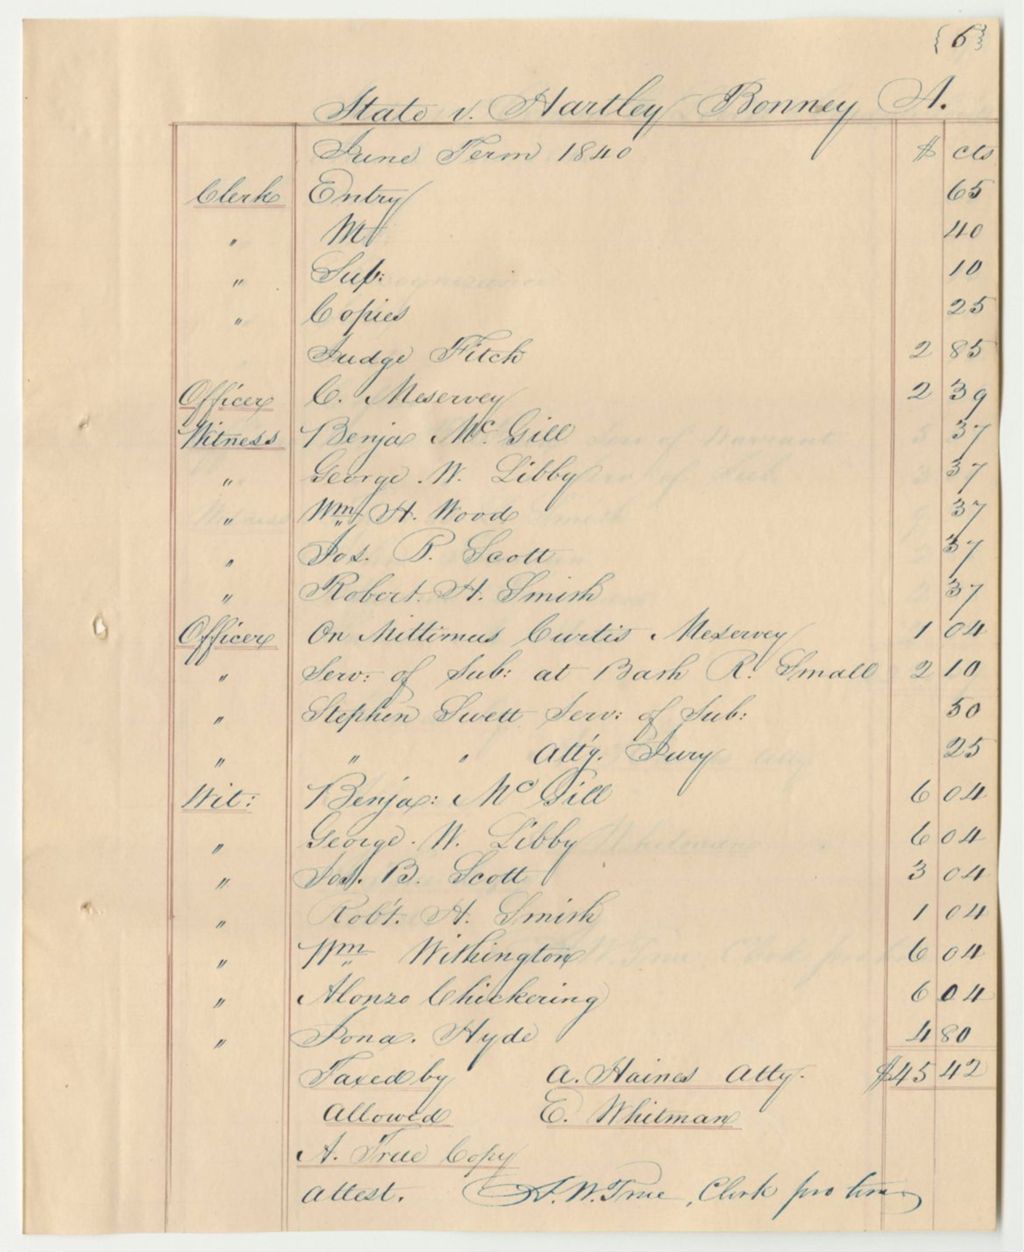 {6}
State v. Hartley Bonney A.
June Term 1840 $ cts
Clerk Entry 65
" M 40
" Sub: 10
" Copies 25
Judge Fitch 2 85
Officer C. Meservey 2 39
Witness Benja Mc. Gill 37
" George. W. Libby 37
" Wm. H. Wood 37
" Jos. P. Scott 37
" Robert. H. Smith 37
Officer On Mittimus Curtis Meservey 1 04
" Serv: of Sub: at Bash R. Small 2 10
" Stephen Swett Serv: of Sub: 50
" " " Att'g. Jury 25
Wit: Benja: Mc Gill 6 04
" George. W. Libby 6 04
" Jos. B. Scott 3 04
" Rob't. H. Smith 1 04
" Wm Withington 6 04
" Alonzo Chickering 6 04
" Jona. Hyde 4 80
Taxed by A. Haines Atty. $45 42
Allowed E. Whitman
A. True Copy
Attest. A. W. True, Clerk pro tem